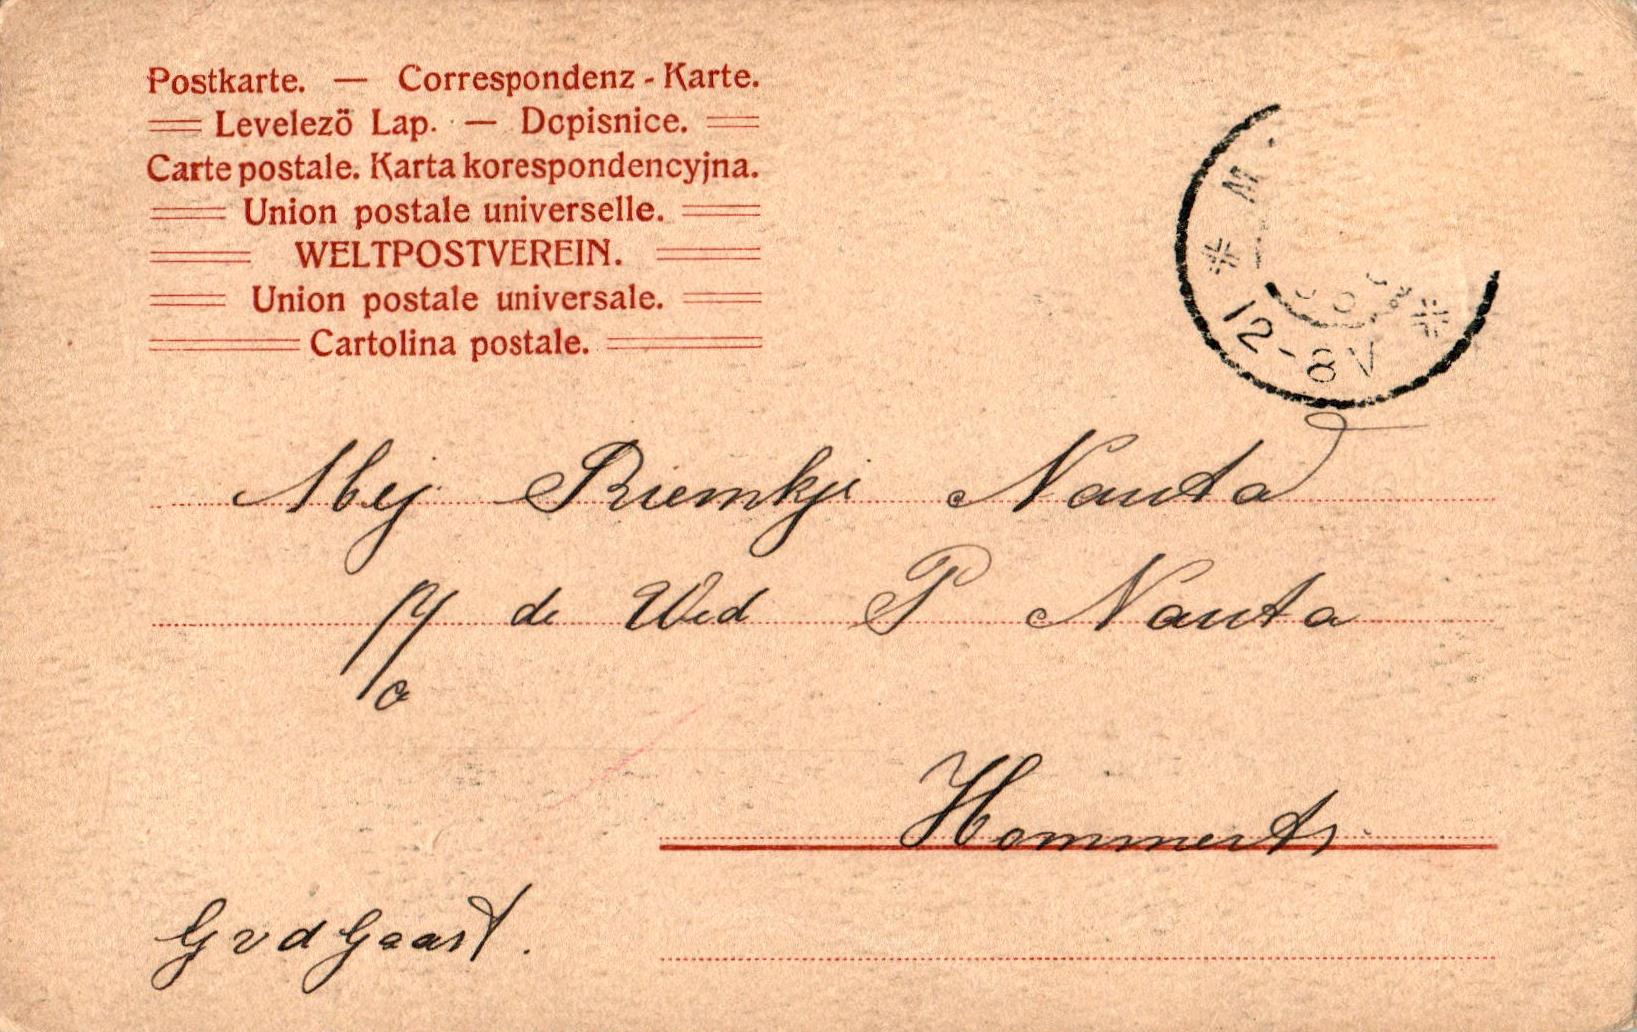 Postkarte. — Correspondenz-Karte.
Levelező Lap. — Dopisnice.
Carte postale. Karta korespondencyjna.
Union postale universelle.
WELTPOSTVEREIN.
Union postale universale.
Cartolina postale.
12-8V
Mej Riemkje Nauta
p/a de Wed P Nauta
Hommerts
G v d Gaast.